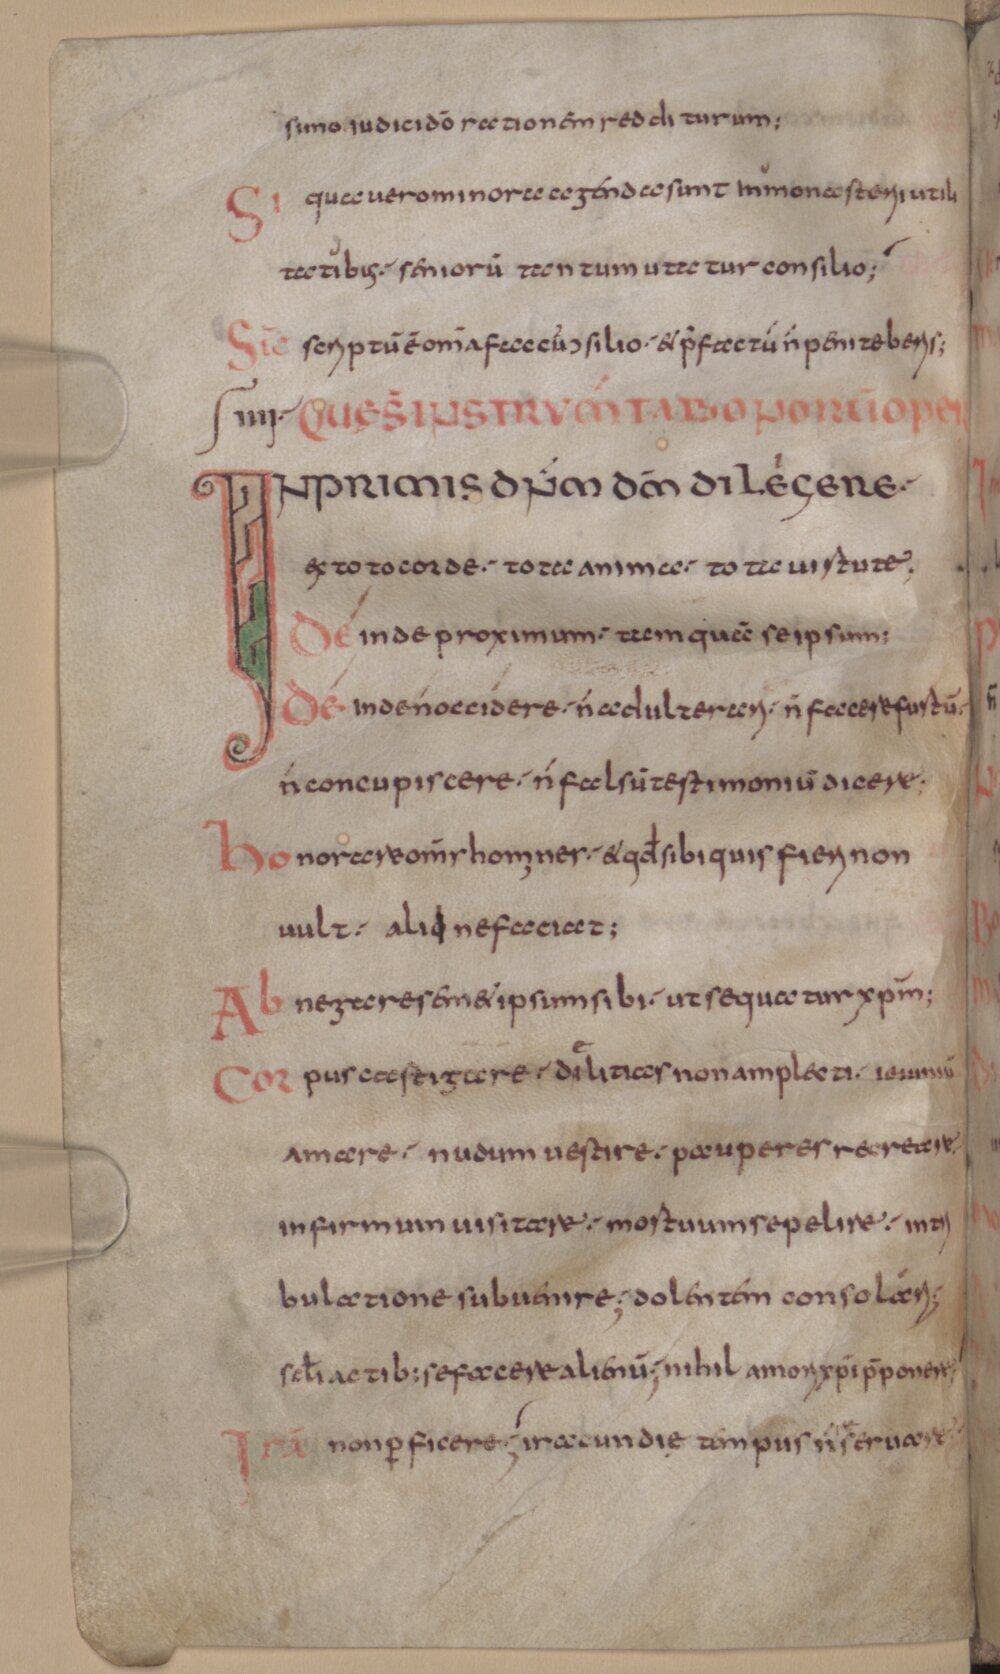 simo iudici dō rationem redditurum;
Si qua vero minora agenda sunt in monasterii utili
tatibus seniorū tantum utatur consilio;
Sic scriptū ē om̄a fac cū consilio · & p̄ factū ń penitebens;
IIII · QUE S̄ INSTRUMENTA BONORUM OPER
IN PRIMIS DN̄M DM̄ DILEGERE ·
ex toto corde · tota anima · tota virtute,
Deinde proximum · tamquā se ipsum;
Deinde ń occidere · ń adulterari · ń facere furtū ·
ń concupiscere · ń falsū testimoniū dicere;
Honorare om̄s homines · & qđ sibi quis fieri non
vult · alio ne faciat;
Abnegare semet ipsum sibi · ut sequatur xpm̄;
Corpus castigare · dilitias non amplecti · ieiuniū
amare · nudum vestire · pauperes recreare,
infirmum visitare · mortuum sepelire · in tri
bulatione subvenire; dolentem consolari;
sc̄li actib: se facere alienū; nihil amori xp̄i p̄ponere;
Irā non perficere; iracundie tempus ń servare;